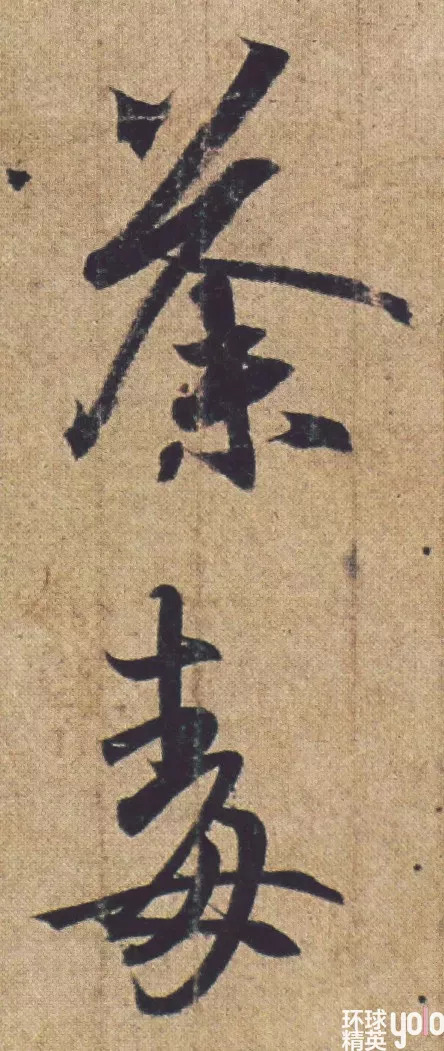 荼
毒
环球
精英
yolo